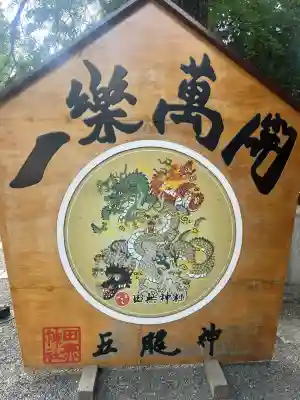 一樂萬
田無神社
五龍神
田無神社